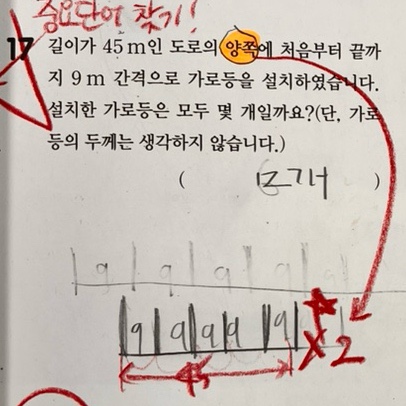 중요단어 찾기!
17 길이가 45 m인 도로의 양쪽에 처음부터 끝까
지 9 m 간격으로 가로등을 설치하였습니다.
설치한 가로등은 모두 몇 개일까요?(단, 가로
등의 두께는 생각하지 않습니다.)
( )
9 9 9 9 9
9 9 9 9 9 ×2
45